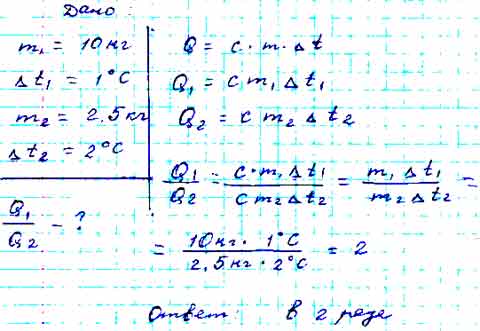 Дано:
m₁ = 10 кг
Δt₁ = 1°C
m₂ = 2,5 кг
Δt₂ = 2°C
Q₁/Q₂ - ?
Q = c · m · Δt
Q₁ = c m₁ Δt₁
Q₂ = c m₂ Δt₂
Q₁/Q₂ = c · m₁ Δt₁ / c m₂ Δt₂ = m₁ Δt₁ / m₂ Δt₂ =
= 10 кг · 1°C / 2,5 кг · 2°C = 2
Ответ: в 2 раза